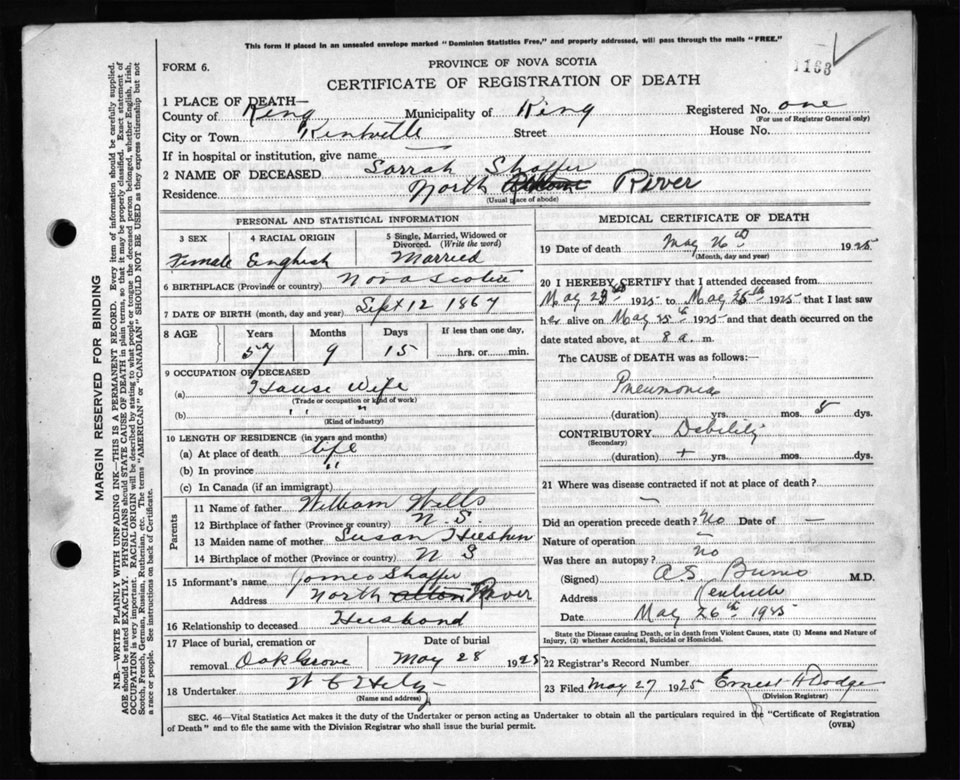 This form if placed in an unsealed envelope marked "Dominion Statistics Free," and properly addressed, will pass through the mails "FREE."
1163
FORM 6.
PROVINCE OF NOVA SCOTIA
CERTIFICATE OF REGISTRATION OF DEATH
1 PLACE OF DEATH—
County of King Municipality of King Registered No. one
(For use of Registrar General only)
City or Town Kentville Street House No.
If in hospital or institution, give name
2 NAME OF DECEASED Sarrah Shaffer
Residence North River
(Usual place of abode)
PERSONAL AND STATISTICAL INFORMATION
3 SEX 4 RACIAL ORIGIN 5 Single, Married, Widowed or Divorced. (Write the word)
Female English Married
6 BIRTHPLACE (Province or country) Nova Scotia
7 DATE OF BIRTH (month, day and year) Sept 12 1867
8 AGE Years Months Days If less than one day,
57 9 15 hrs. or min.
9 OCCUPATION OF DECEASED
(a) House Wife
(Trade or occupation or kind of work)
(b) " "
(Kind of industry)
10 LENGTH OF RESIDENCE (in years and months)
(a) At place of death life
(b) In province "
(c) In Canada (if an immigrant)
Parents
11 Name of father William Wells
12 Birthplace of father (Province or country) N.S.
13 Maiden name of mother Susan
14 Birthplace of mother (Province or country) N S
15 Informant's name James Shaffer
Address North Alton River
16 Relationship to deceased Husband
17 Place of burial, cremation or removal Oak Grove Date of burial May 28 1925
18 Undertaker W C
(Name and address)
MEDICAL CERTIFICATE OF DEATH
19 Date of death May 26th 1925
(Month, day and year)
20 I HEREBY CERTIFY that I attended deceased from
May 23rd 1925 to May 25th 1925 that I last saw
her alive on May 25th 1925 and that death occurred on
date stated above, at 8 a. m.
The CAUSE of DEATH was as follows:—
Pneumonia
(duration) yrs. mos. 8 dys.
CONTRIBUTORY Debility
(Secondary)
(duration) + yrs. mos. dys.
21 Where was disease contracted if not at place of death?
—
Did an operation precede death? No Date of —
Nature of operation —
Was there an autopsy? No
(Signed) A S Burns M.D.
Address Kentville
Date May 26th 1925
State the Disease causing Death, or in death from Violent Causes, state (1) Means and Nature of
Injury, (2) whether Accidental, Suicidal or Homicidal.
22 Registrar's Record Number
23 Filed May 27 1925 Ernest H Dodge
(Division Registrar)
SEC. 46—Vital Statistics Act makes it the duty of the Undertaker or person acting as Undertaker to obtain all the particulars required in the "Certificate of Registration
of Death" and to file the same with the Division Registrar who shall issue the burial permit.
(OVER)
MARGIN RESERVED FOR BINDING
N.B.—WRITE PLAINLY WITH UNFADING INK—THIS IS A PERMANENT RECORD. Every item of information should be carefully supplied.
AGE should be stated EXACTLY. PHYSICIANS should STATE CAUSE OF DEATH in plain terms, so that it may be properly classified. Exact statement of
OCCUPATION is very important. RACIAL ORIGIN will be described by stating to what people or tongue the deceased person belonged, whether English, Irish,
Scotch, French, German, Russian, Ruthenian, etc. The terms "AMERICAN" or "CANADIAN" SHOULD NOT BE USED as they express citizenship but not
a race or people. See instructions on back of Certificate.